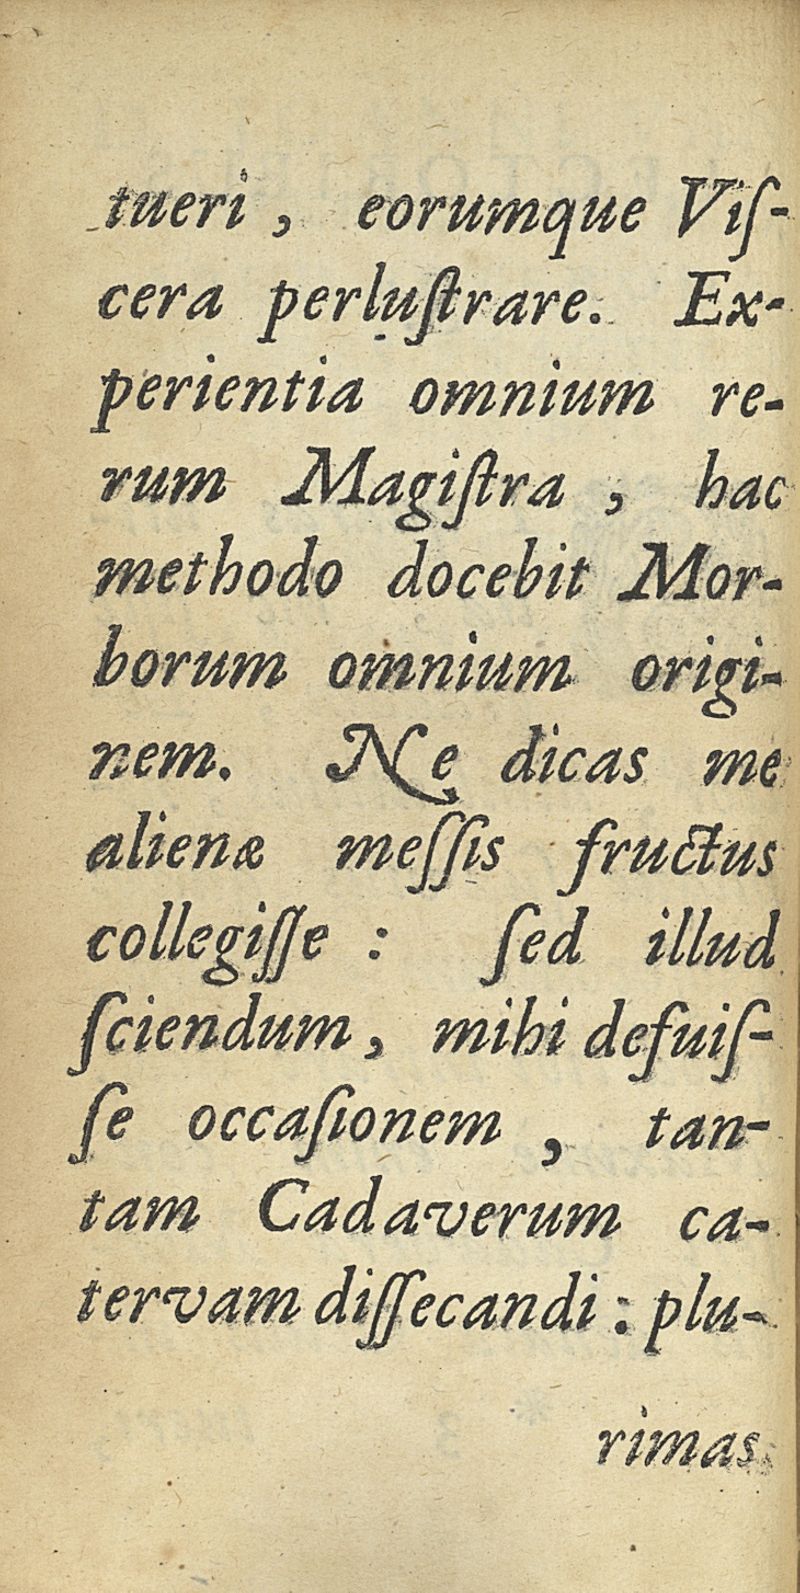 tueri, eorumque Viſ-
cera perluſtrare. Ex-
perientia omnium re-
rum Magiſtra, hac
methodo docebit Mor-
borum omnium origi-
nem. Ne dicas me
alienæ meſſis fructus
collegiſſe: ſed illud
ſciendum, mihi defuiſ-
ſe occaſionem, tan-
tam Cadaverum ca-
tervam diſſecandi: plu-
rimas